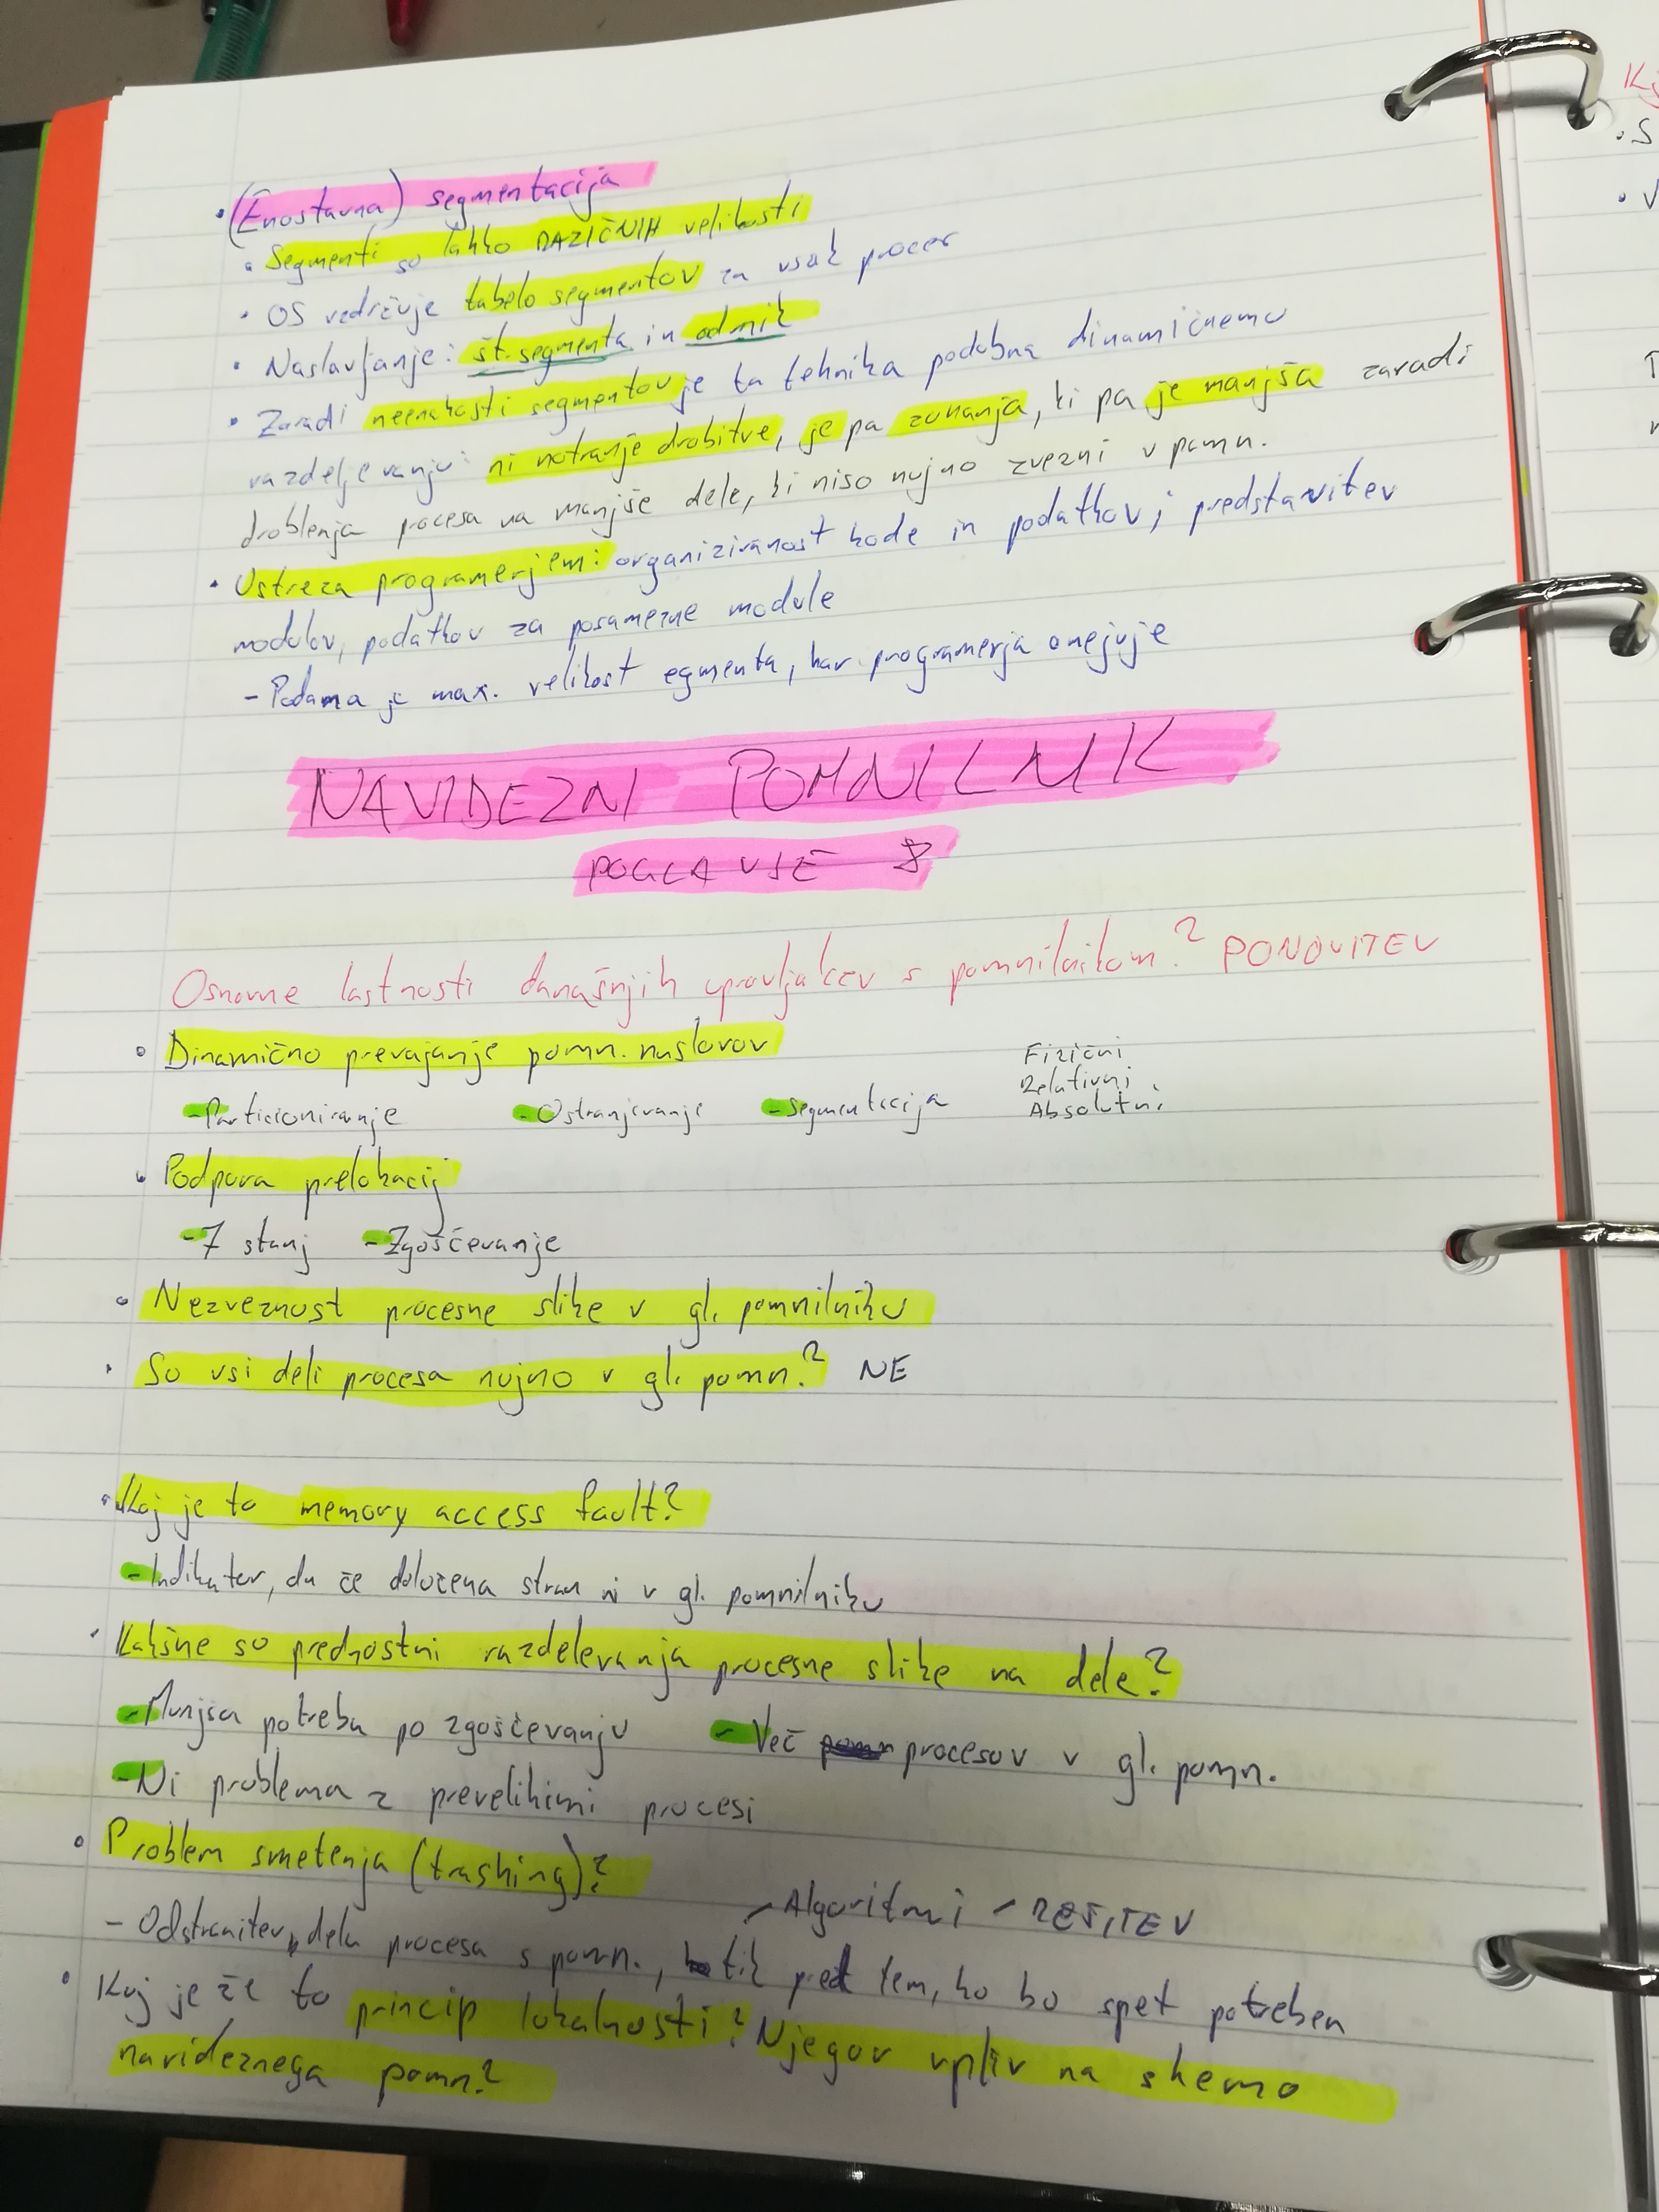 • (Enostavna) segmentacija
• Segmenti so lahko RAZIČNIH velikosti
• OS vzdržuje tabelo segmentov za vsak proces
• Naslavljanje: št. segmenta in odmik
• Zaradi neenakosti segmentov je ta tehnika podobna dinamičnemu
razdeljevanju: ni notranje drobitve, je pa zunanja, ki pa je manjša zaradi
drobljenja procesa na manjše dele, ki niso nujno zvezni v pomn.
• Ustreza programerjem: organiziranost kode in podatkov, predstavitev
modulov, podatkov za posamezne module
- Podana je max. velikost egmenta, kar programerja omejuje
NAVIDEZNI POMNILNIK
POGLAVJE 8
Osnovne lastnosti današnjih upravljalcev s pomnilnikom? PONOVITEV
• Dinamično prevajanje pomn. naslovov
Fizični
Relativni
- Particioniranje - Ostranjevanje - Segmentacija
Absolutni
• Podpora prelokacij
- 7 stanj - Zgoščevanje
• Nezveznost procesne slike v gl. pomnilniku
• So vsi deli procesa nujno v gl. pomn.? NE
• Kaj je to memory access fault?
- Indikator, da če določena stran ni v gl. pomnilniku
• Kakšne so prednostni razdelevanja procesne slike na dele?
- Manjša potreba po zgoščevanju - Več procesov v gl. pomn.
- Ni problema z prevelikimi procesi
• Problem smetenja (trashing)?
- Algoritmi - REŠITEV
- Odstranitev dela procesa s pomn., tik pred tem, ko bo spet potreben
• Kaj je že to princip lokalnosti? Njegov vpliv na shemo
navideznega pomn?
Kj
• S
• V